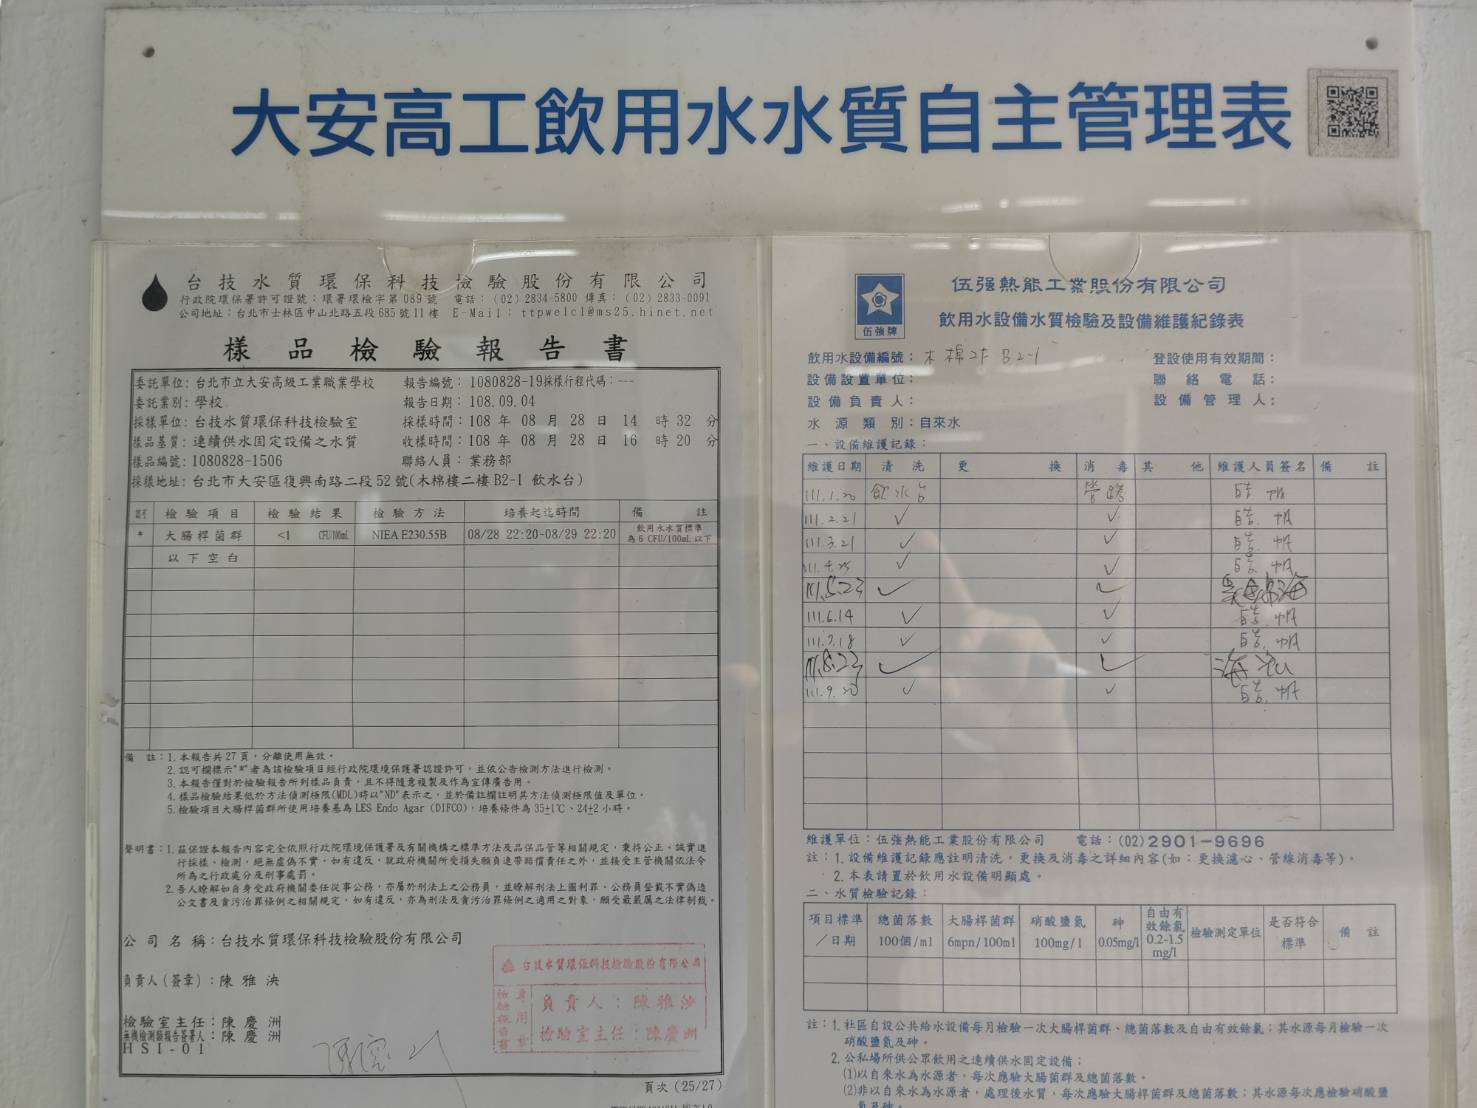 大安高工飲用水水質自主管理表
台技水質環保科技檢驗股份有限公司
行政院環保署許可證號：環署環檢字第089號 電話：(02)2834-5800 傳真：(02)2833-0091
公司地址：台北市士林區中山北路五段685號11樓 E-Mail：ttpwelcl@ms25.hinet.net
樣品檢驗報告書
委託單位：台北市立大安高級工業職業學校 報告編號：1080828-19採樣行程代碼：---
委託業別：學校 報告日期：108.09.04
採樣單位：台技水質環保科技檢驗室 採樣時間：108 年 08 月 28 日 14 時 32 分
樣品基質：連續供水固定設備之水質 收樣時間：108 年 08 月 28 日 16 時 20 分
樣品編號：1080828-1506 聯絡人員：業務部
採樣地址：台北市大安區復興南路二段52號(木棉樓二樓B2-1 飲水台)
檢驗項目 檢驗結果 檢驗方法 培養起迄時間 備註
* 大腸桿菌群 <1 CFU/100mL NIEA E230.55B 08/28 22:20-08/29 22:20 飲用水水質標準為6 CFU/100mL以下
以下空白
備 註：1.本報告共27頁，分離使用無效。
2.認可欄標示"*"者為該檢驗項目經行政院環境保護署認證許可，並依公告檢測方法進行檢測。
3.本報告僅對於檢驗報告所列樣品負責，且不得隨意複製及作為宣傳廣告用。
4.樣品檢驗結果低於方法偵測極限(MDL)時以"ND"表示之，並於備註欄註明其方法偵測極限值及單位。
5.檢驗項目大腸桿菌群所使用培養基為LES Endo Agar (DIFCO)，培養條件為35±1℃、24±2小時。
聲明書：1.茲保證本報告內容完全依照行政院環境保護署及有關機構之標準方法及品保品管等相關規定，秉持公正、誠實進
行採樣、檢測，絕無虛偽不實，如有違反，就政府機關所受損失願負連帶賠償責任之外，並接受主管機關依法令
所為之行政處分及刑事處罰。
2.吾人瞭解如自身受政府機關委任從事公務，亦屬於刑法上之公務員，並瞭解刑法上圖利罪、公務員登載不實偽造
公文書及貪污治罪條例之相關規定，如有違反，亦為刑法及貪污治罪條例之適用之對象，願受最嚴厲之法律制裁。
公司名稱：台技水質環保科技檢驗股份有限公司
負責人(簽章)：陳雅泱
檢驗室主任：陳慶洲
無機檢測類報告簽署人：陳慶洲
HSI-01
台技水質環保科技檢驗股份有限公司
負責人：陳雅泱
檢驗室主任：陳慶洲
頁次(25/27)
伍強牌
伍强熱能工業股份有限公司
飲用水設備水質檢驗及設備維護紀錄表
飲用水設備編號：木棉2F B2-1 登設使用有效期間：
設備設置單位： 聯絡電話：
設備負責人： 設備管理人：
水源類別：自來水
一、設備維護記錄：
維護日期 清洗 更換 消毒 其他 維護人員簽名 備註
111.1.20 飲水台 管路
111.2.21 ✓ ✓
111.3.21 ✓ ✓
111.4.25 ✓ ✓
111.5.23 ✓ ✓
111.6.14 ✓ ✓
111.7.18 ✓ ✓
111.8.23 ✓ ✓
111.9.20 ✓ ✓
維護單位：伍強熱能工業股份有限公司 電話：(02)2901-9696
註：1.設備維護記錄應註明清洗，更換及消毒之詳細內容(如：更換濾心、管線消毒等)。
2.本表請置於飲用水設備明顯處。
二、水質檢驗記錄：
項目標準／日期 總菌落數100個/ml 大腸桿菌群6mpn/100ml 硝酸鹽氮100mg/l 砷0.05mg/l 自由有效餘氯0.2-1.5mg/l 檢驗測定單位 是否符合標準 備註
註：1.社區自設公共給水設備每月檢驗一次大腸桿菌群、總菌落數及自由有效餘氯；其水源每月檢驗一次
硝酸鹽氮及砷。
2.公私場所供公眾飲用之連續供水固定設備：
(1)以自來水為水源者，每次應驗大腸桿菌群及總菌落數。
(2)非以自來水為水源者，處理後水質，每次應驗大腸桿菌群及總菌落數；其水源每次應檢驗硝酸鹽